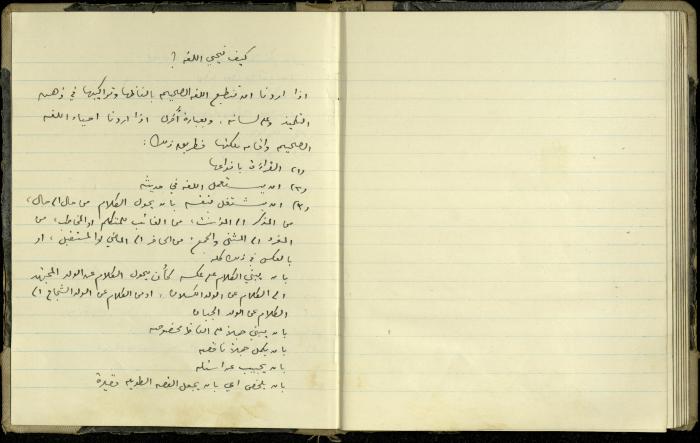 كيف نحيي اللغة ؟
اذا اردنا ان تنطبع اللغة الصحيحة بالفاظها وتراكيبها في ذهن
التلميذ وعلى لسانه، وبعبارة أخرى اذا اردنا احياء اللغة
الصحيحة فطريقة ذلك:
(١) القراءة بانواعها
(٢) ان يستعمل اللغة في حديثه
(٣) ان يشتغل بنفسه بان يحول الكلام من حال الى حال،
من المذكر الى المؤنث، من الغائب للمتكلم او المخاطب، من
المفرد الى المثنى والجمع، من الحاضر الى الماضي او المستقبل، او
بالعكس في ذلك كله
بان يبني الكلام على عكسه كأن يحول الكلام عن الولد المجتهد
الى الكلام عن الولد الكسلان، او من الكلام عن الولد الشجاع الى
الكلام عن الولد الجبان
بان يبني جملا من الفاظ مخصوصة
بان يكمل جملا ناقصة
بان يجيب عن اسئلة
بان يلخص اي بان يجعل القصة الطويلة قصيرة